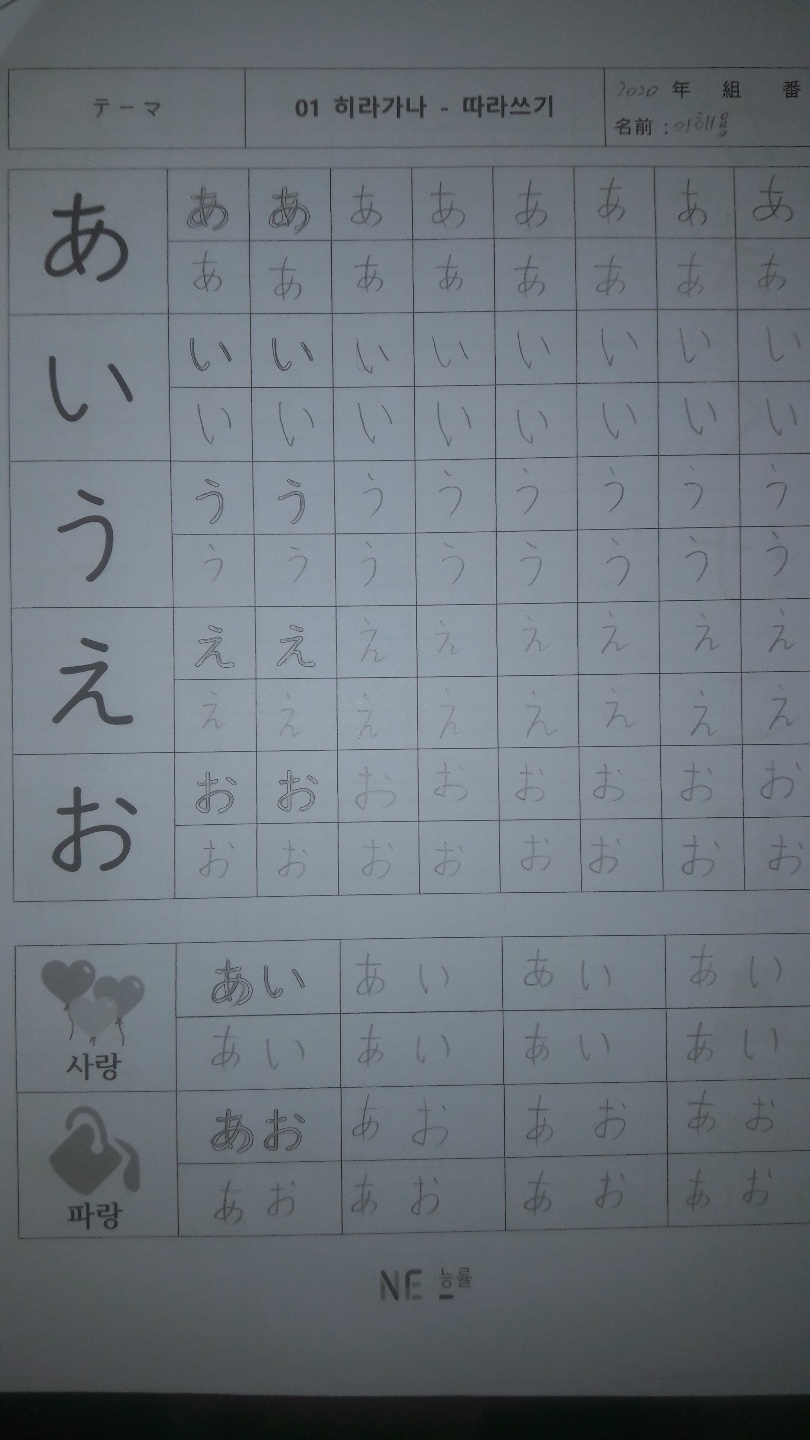 テーマ 01 히라가나 - 따라쓰기 2020 年 組 番
名前 : 이해울
あ あ あ あ あ あ あ あ あ
あ あ あ あ あ あ あ あ
い い い い い い い い い
い い い い い い い い
う う う う う う う う う
う う う う う う う う
え え え え え え え え え
え え え え え え え え
お お お お お お お お お
お お お お お お お お
あい あ い あ い あ い
사랑 あ い あ い あ い あ い
あお あ お あ お あ お
파랑 あ お あ お あ お あ お
NE 능률